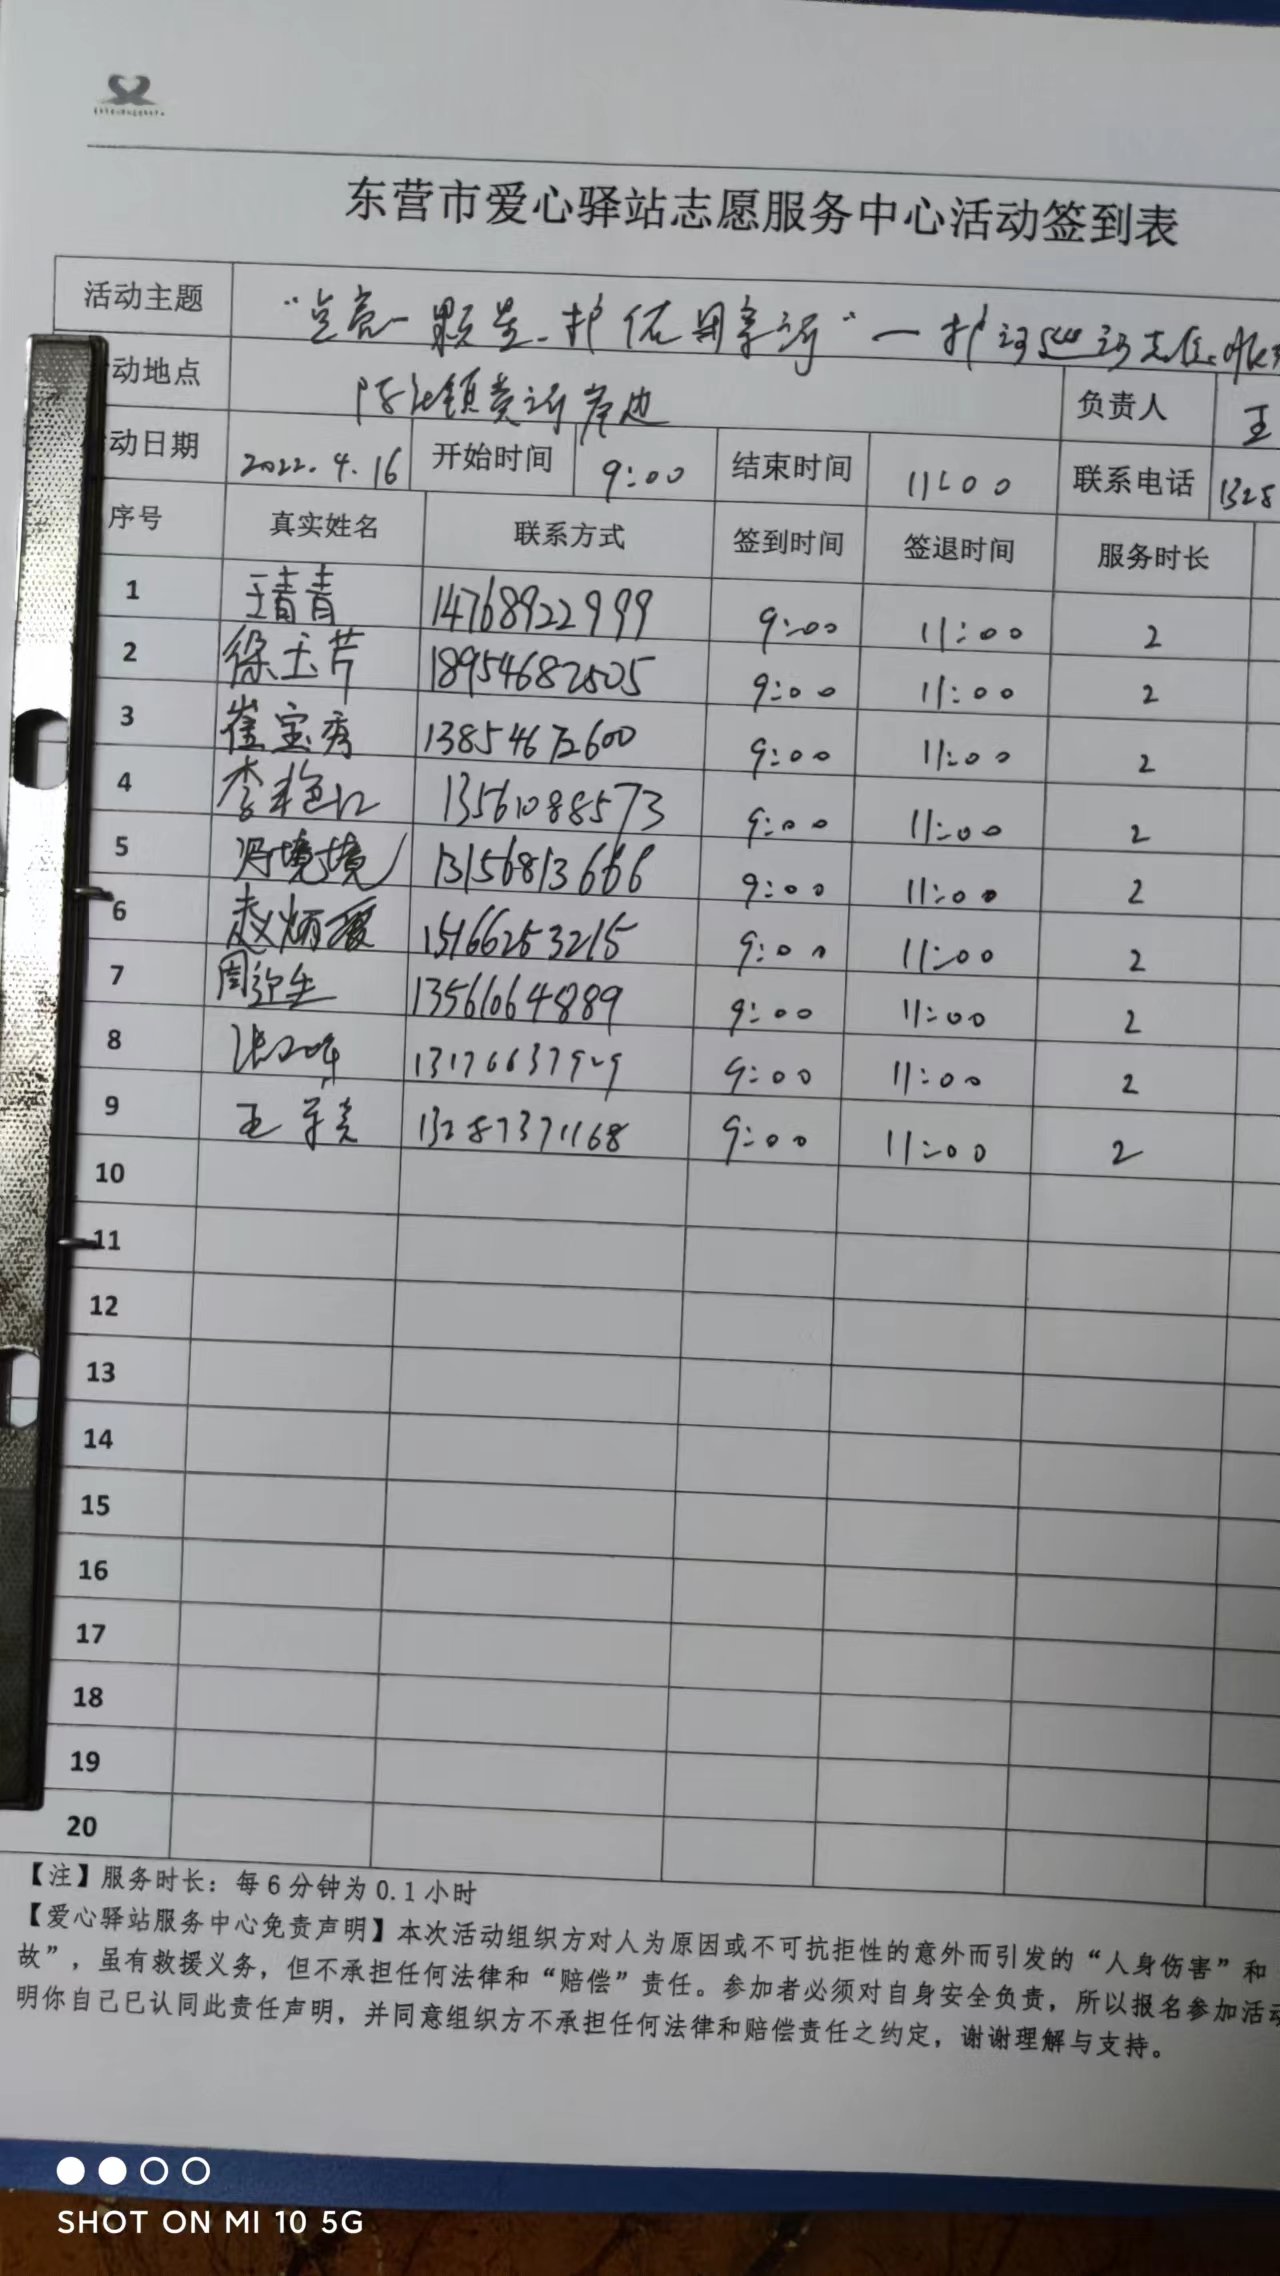 东营市爱心驿站志愿服务中心活动签到表
活动主题 "点亮一颗星-护佑母亲河"一护河巡河志愿服
动地点 陈庄镇黄河岸边 负责人 王
动日期 2022.4.16 开始时间 9:00 结束时间 11:00 联系电话 1328
序号 真实姓名 联系方式 签到时间 签退时间 服务时长
1 王青青 14768922999 9:00 11:00 2
2 徐玉芹 18954682505 9:00 11:00 2
3 崔宝秀 13854672600 9:00 11:00 2
4 李艳红 13561088573 9:00 11:00 2
5 冯境境 13156813666 9:00 11:00 2
6 赵炳瑷 15166253215 9:00 11:00 2
7 周迎生 13561064889 9:00 11:00 2
8 13176637929 9:00 11:00 2
9 王 13287371168 9:00 11:00 2
10
11
12
13
14
15
16
17
18
19
20
【注】服务时长：每6分钟为0.1小时
【爱心驿站服务中心免责声明】本次活动组织方对人为原因或不可抗拒性的意外而引发的“人身伤害”和
故”，虽有救援义务，但不承担任何法律和“赔偿”责任。参加者必须对自身安全负责，所以报名参加活动
明你自己已认同此责任声明，并同意组织方不承担任何法律和赔偿责任之约定，谢谢理解与支持。
SHOT ON MI 10 5G